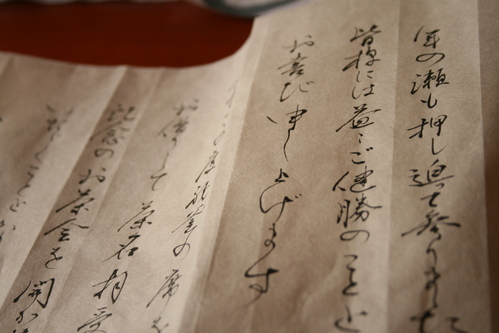 年の瀬も押し迫って参りました
皆様には益々ご健勝のことと
お喜び申し上げます
席を
お借りして茶名相受
記念のお茶会を開か